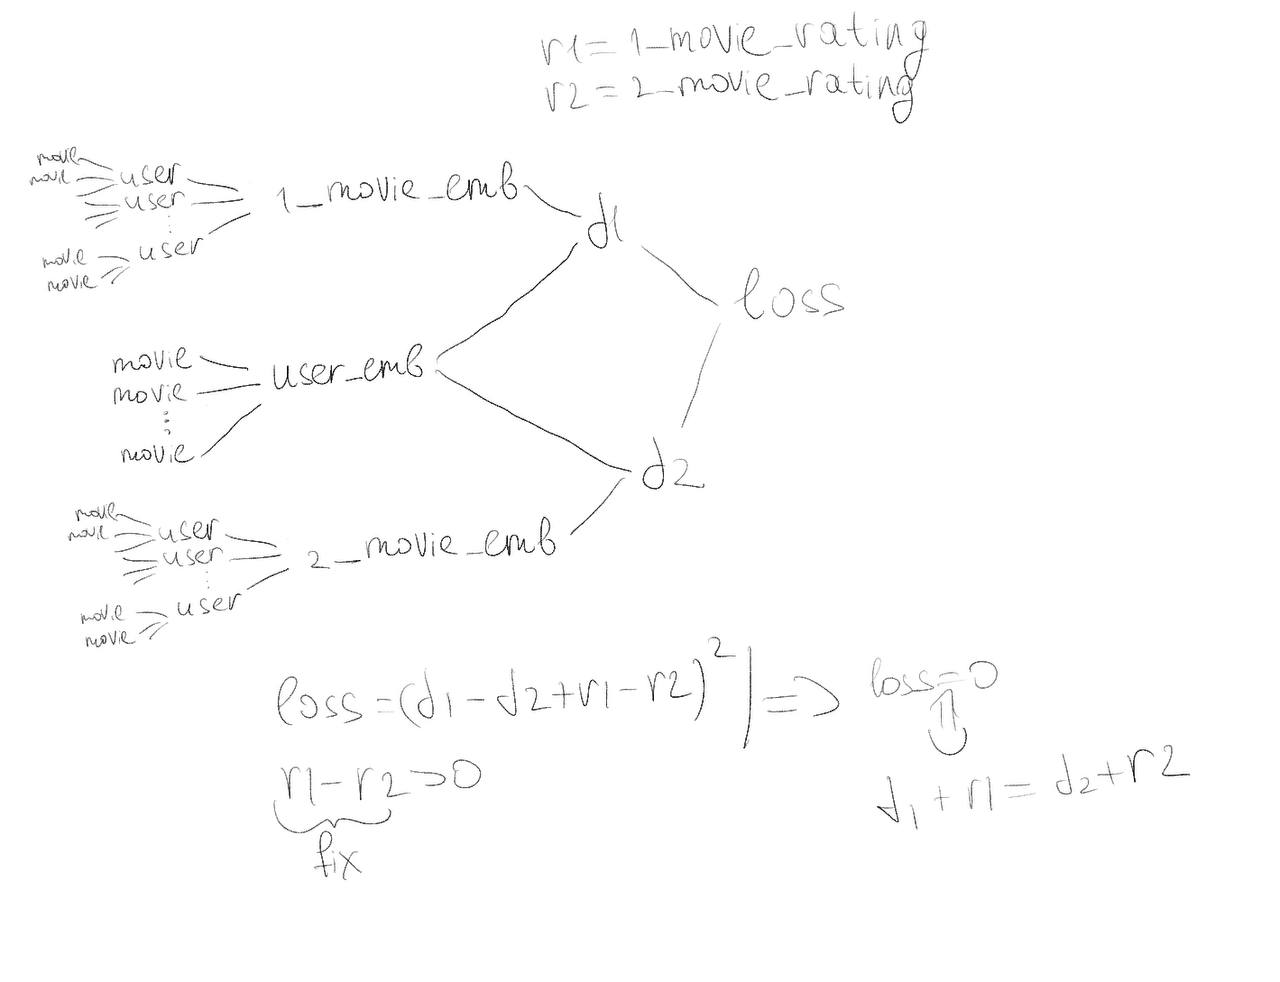 r1=1_movie_rating
r2=2_movie_rating
movie
movie
user
user
movie
movie
user
1_movie_emb
d1
loss
movie
movie
movie
user_emb
d2
movie
movie
user
user
movie
movie
user
2_movie_emb
loss=(d1-d2+r1-r2)² | => loss=0
r1-r2>0
fix
⇕
d1+r1=d2+r2